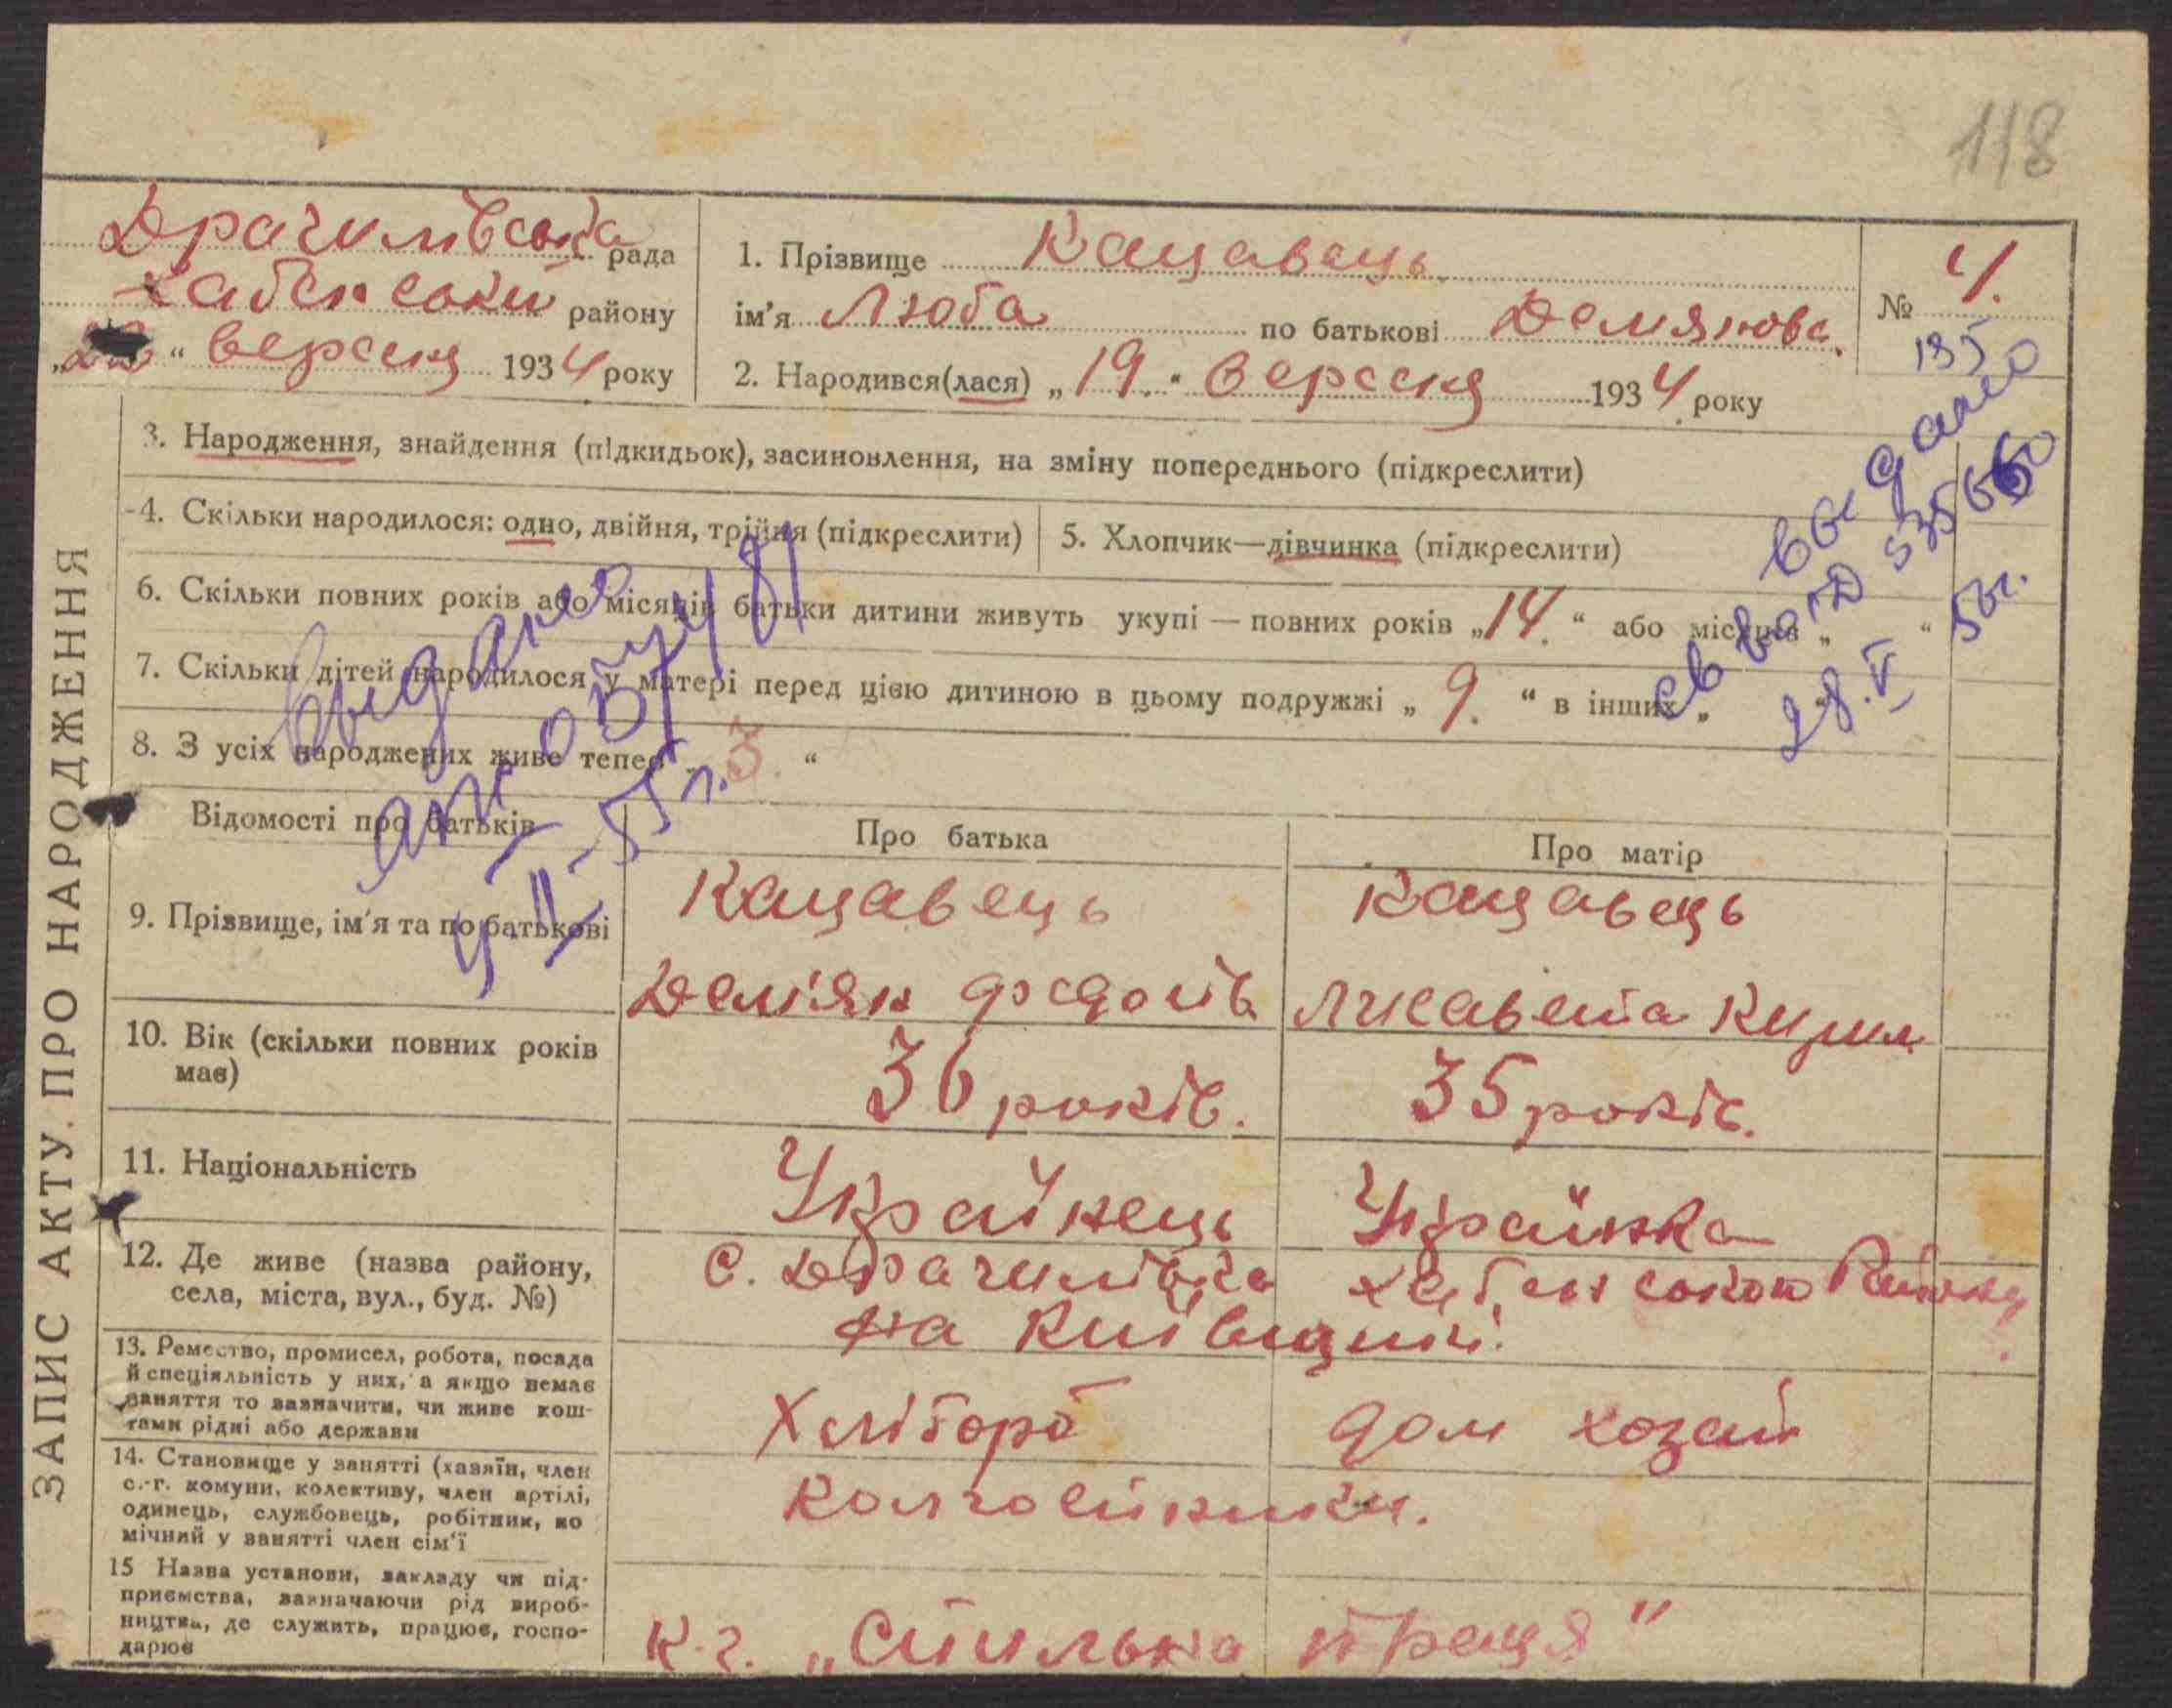 118
Драчилівська рада
Хабенський району
„23“ вересня 1934 року
1. Прізвище Кацавець
ім'я Люба по батькові Демянова.
2. Народився(лася) „19.“ вересня 1934 року
№ 4.
135
ЗАПИС АКТУ ПРО НАРОДЖЕННЯ
3. Народження, знайдення (підкидьок), засиновлення, на зміну попереднього (підкреслити)
4. Скільки народилося: одно, двійня, трійня (підкреслити)
5. Хлопчик—дівчинка (підкреслити)
6. Скільки повних років або місяців батьки дитини живуть укупі — повних років „14.“ або місяців „ “
7. Скільки дітей народилося у матері перед цією дитиною в цьому подружжі „9.“ в інших „
8. З усіх народжених живе тепер „3.“
выдано
4 II-55 г.
выдано
св во
28.V 56г.
Відомості про батьків
Про батька
Про матір
9. Прізвище, ім'я та по батькові
Кацавець
Дем'ян Федотів
Кацавець
Лисавета Кирил
10. Вік (скільки повних років
має)
36 років.
35 років.
11. Національність
Українець
Українка
12. Де живе (назва району,
села, міста, вул., буд. №)
с. Драчилівка Хабенського Району
на Київщині.
13. Ремество, промисел, робота, посада
й спеціяльність у них, а якщо немає
заняття то зазначити, чи живе кош-
тами рідні або держави
Хлібороб
дом хозяй
14. Становище у занятті (хазяїн, член
с.-г. комуни, колективу, член артілі,
одинець, службовець, робітник, по
мічний у занятті член сім'ї
Колгоспники.
15 Назва установи, закладу чи під-
приємства, зазначаючи рід вироб-
ництва, де служить, працює, госпо-
дарює
К-г. „Спильна праця"